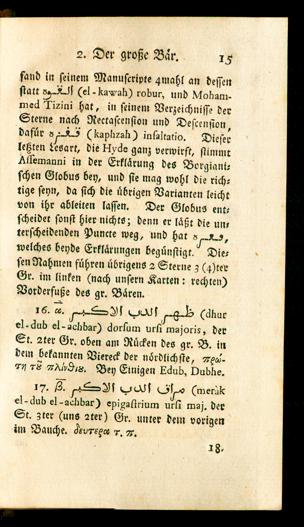 2. Der große Bär. 15
fand in seinem Manuscripte 4mahl an dessen
statt القوه (el-kawah) robur, und Moham-
med Tizini hat, in seinem Verzeichnisse der
Sterne nach Rectascension und Descension,
dafür قفزه (kaphzah) insaltatio. Dieser
letzten Lesart, die Hyde ganz verwirft, stimmt
Assemanni in der Erklärung des Borgiani-
schen Globus bey, und sie mag wohl die rich-
tige seyn, da sich die übrigen Varianten leicht
von ihr ableiten lassen. Der Globus ent-
scheidet sonst hier nichts; denn er läßt die un-
terscheidenden Puncte weg, und hat
welches beyde Erklärungen begünstigt. Die-
sen Nahmen führen übrigens 2 Sterne 3 (4)ter
Gr. im linken (nach unsern Karten: rechten)
Vorderfuße des gr. Bären.
16. α. ظهر الدب الاكبر (dhur
el-dub el-achbar) dorsum ursi majoris, der
St. 2ter Gr. oben am Rücken des gr. B. in
dem bekannten Viereck der nördlichste, πρώ-
τη τοῦ πλινθίου. Bey Einigen Edub, Dubhe.
17. β. مراق الدب الاكبر (merak
el-dub el-achbar) epigastrium ursi maj. der
St. 3ter (uns 2ter) Gr. unter dem vorigen
im Bauche. δευτερα τ. π.
18.